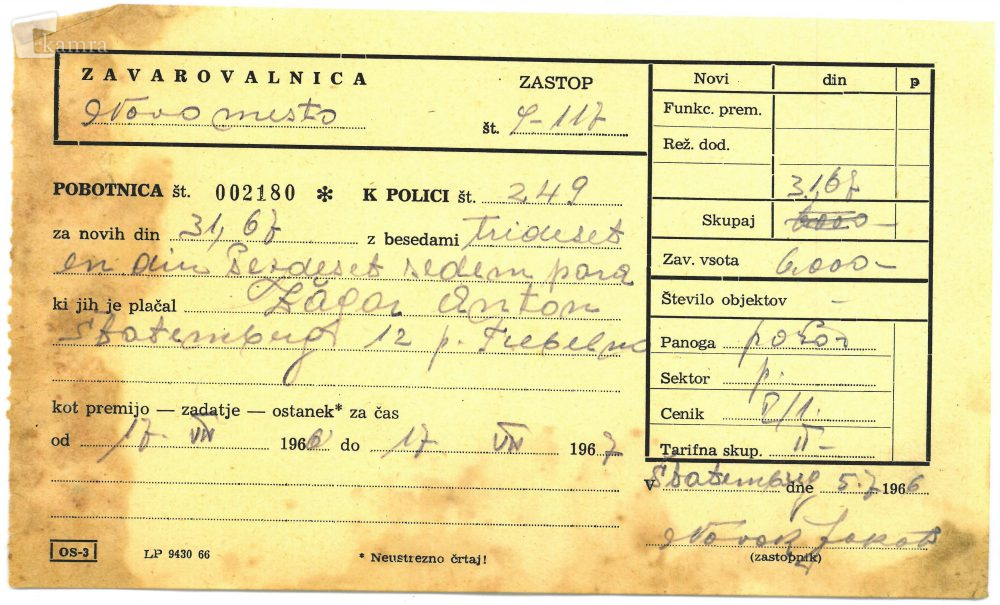 kamra
ZAVAROVALNICA
Novo mesto
ZASTOP
št. 9-117
POBOTNICA št. 002180 * K POLICI št. 249
za novih din 31,67 z besedami Trideset
en din šezdeset sedem para
ki jih je plačal Žagar Anton
Štatemberg 12 p. Trebelno
kot premijo — zadatje — ostanek* za čas
od 17. VII 1966 do 17 VII 1967
OS-3 LP 9430 66 * Neustrezno črtaj!
Novi din p
Funkc. prem.
Rež. dod.
31,67
Skupaj 6000-
Zav. vsota 6000-
Število objektov -
Panoga požar
Sektor p.
Cenik V/1.
Tarifna skup. II-
V Štatemberg dne 5.7 1966
Novak Jakob
(zastopnik)